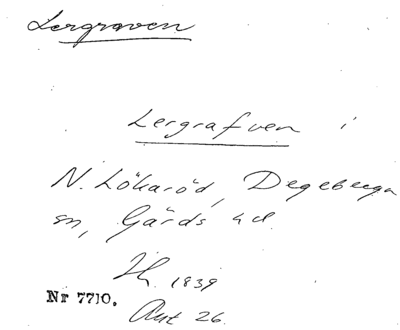 Lergraven
Lergrafven i
N. Lökaröd, Degeberga
sn, Gärds hd
Sk. 1839
Nr 7710.
Akt 26.